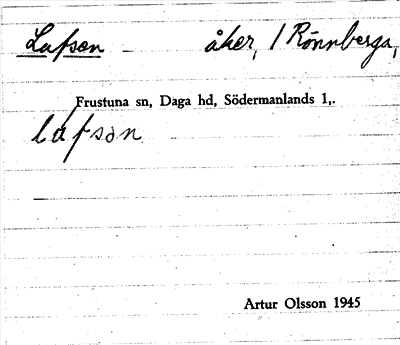 Lafsan - åker, / Rönnberga,
Frustuna sn, Daga hd, Södermanlands l,.
lafsan
Artur Olsson 1945